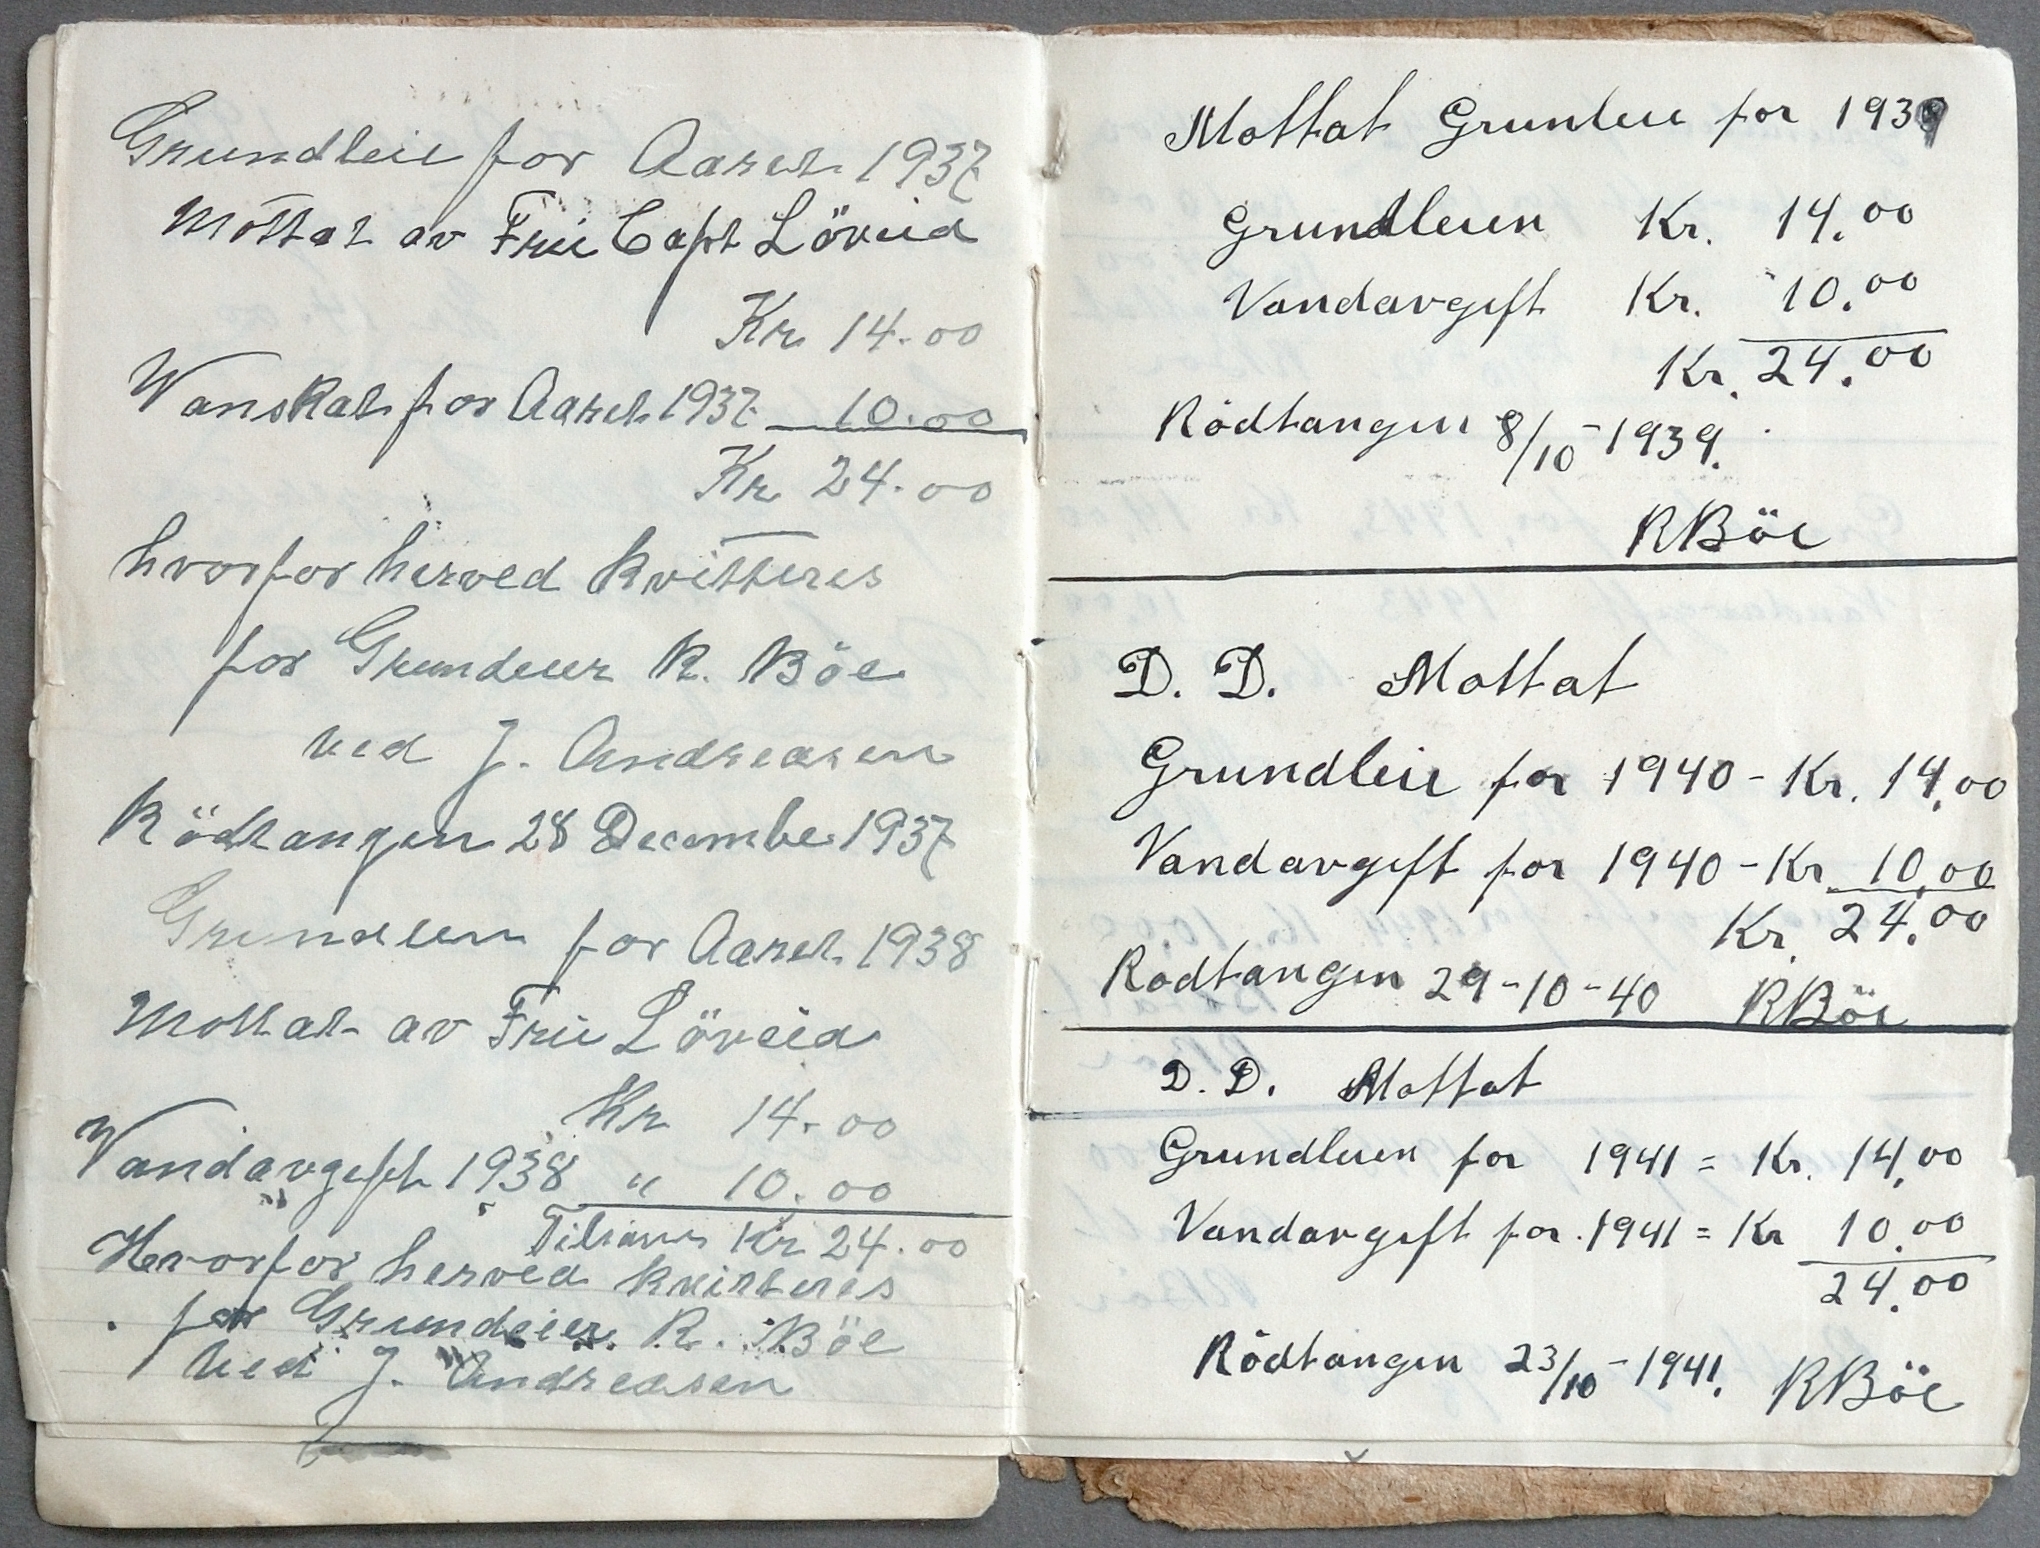 Grundleie for Aaret 1937
Mottat av Frue Capt Löveid
Kr. 14.00
Vanskat for Aaret 1937 10.00
Kr. 24.00
hvorfor herved kvitteres
for Grundeier R. Böe
ved J. Andreasen
Rödtangen 28 December 1937
Grundleien for Aaret 1938
Mottat av Frue Löveid
Kr 14.00
Vandavgift 1938 " 10.00
Tilsam Kr 24.00
Hvorfor herved kvitteres
for Grundeier R. Böe
Ved J. Andreasen
Mottat Grunleie for 1939
Grundleien Kr. 14.00
Vandavgift Kr. 10.00
Kr. 24.00
Rödtangen 8/10-1939.
RBöe
D. D. Mottat
Grundleie for 1940 - Kr. 14,00
Vandavgift for 1940 - Kr. 10,00
Kr. 24.00
Rödtangen 29-10-40 RBöe
D. D. Mottat
Grundleien for 1941 = Kr. 14,00
Vandavgift for 1941 = Kr 10.00
24.00
Rödtangen 23/10-1941. RBöe